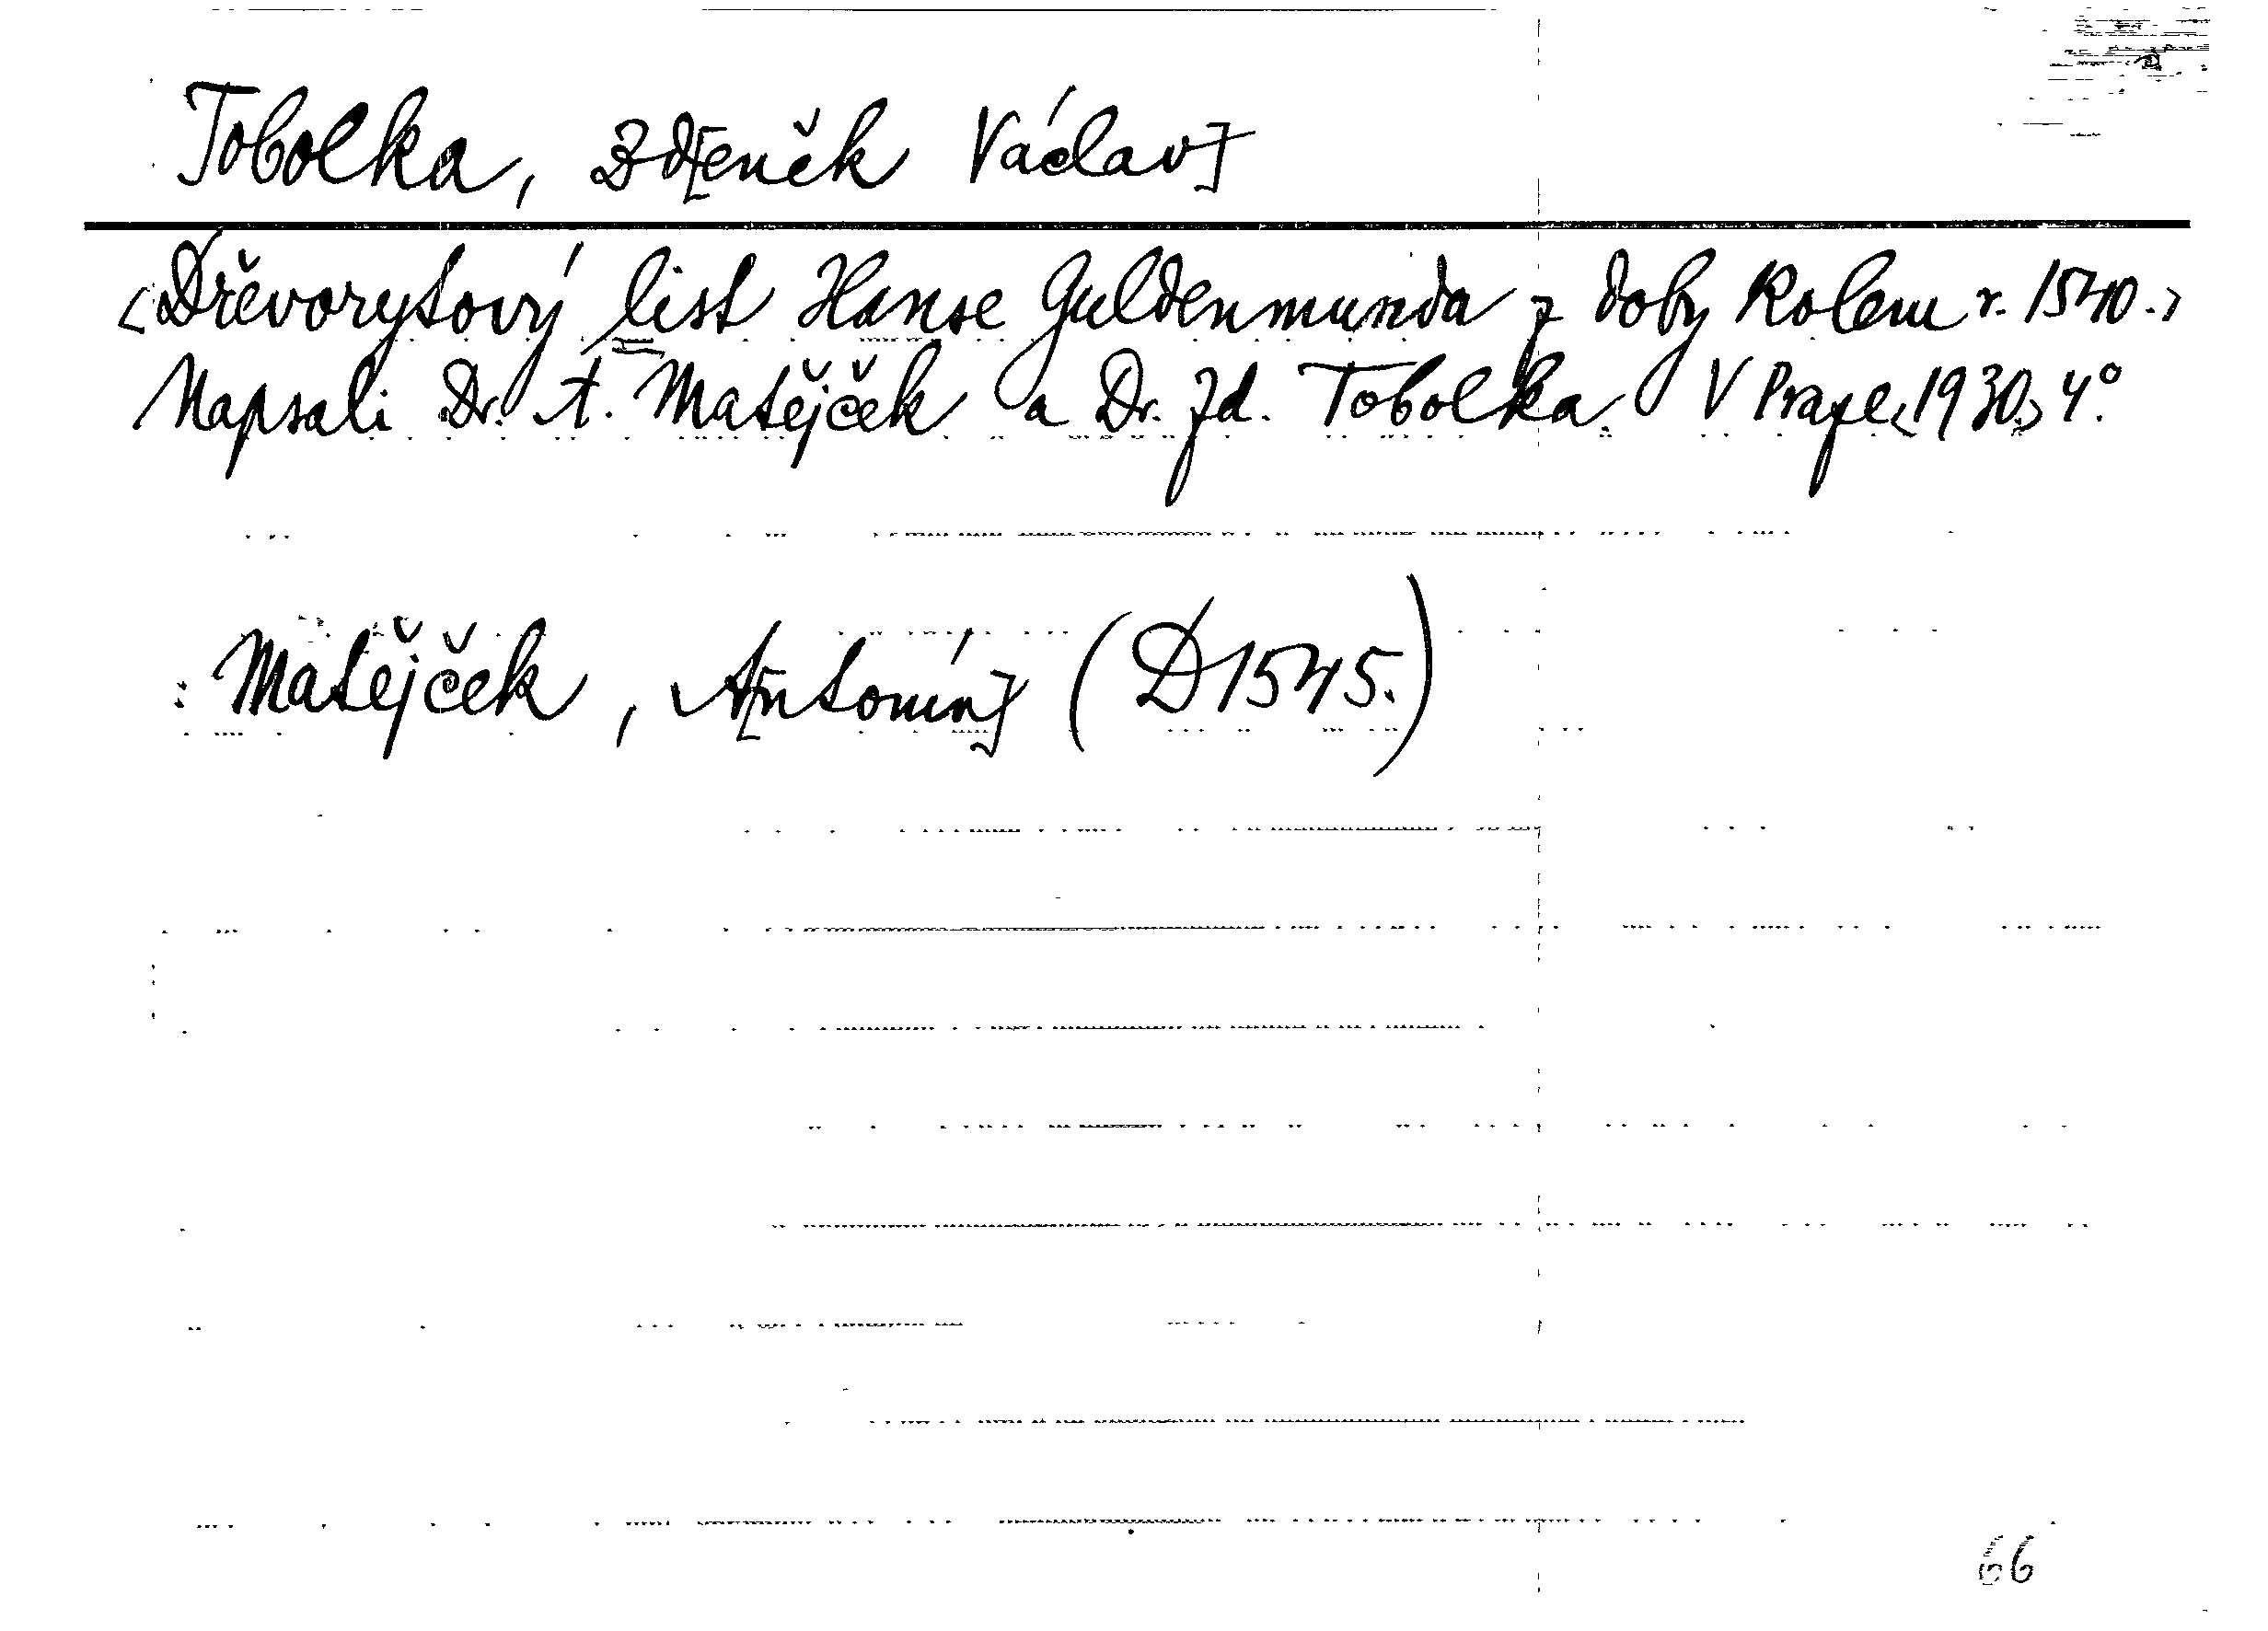 Tobolka, Zd[eněk Václav]
<Dřevorytový list Hanse Guldenmunda z doby kolem r. 1540.>
Napsali Dr. A. Matějček a Dr. Zd. Tobolka. V Praze <1930.> 4°.
: Matějček, A[ntonín] (D1545.)
66